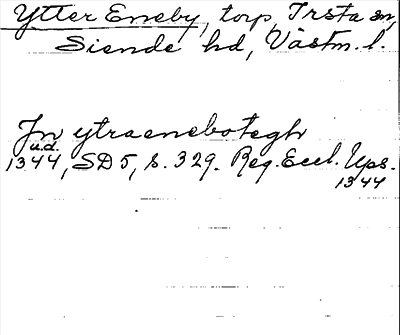 Ytter Eneby, torp, Irsta sn,
Siende hd, Västm. l.
Jn ytraenebotegh
u.d.
1344, SD 5, s. 329. Reg. Eccl. Ups.
1344